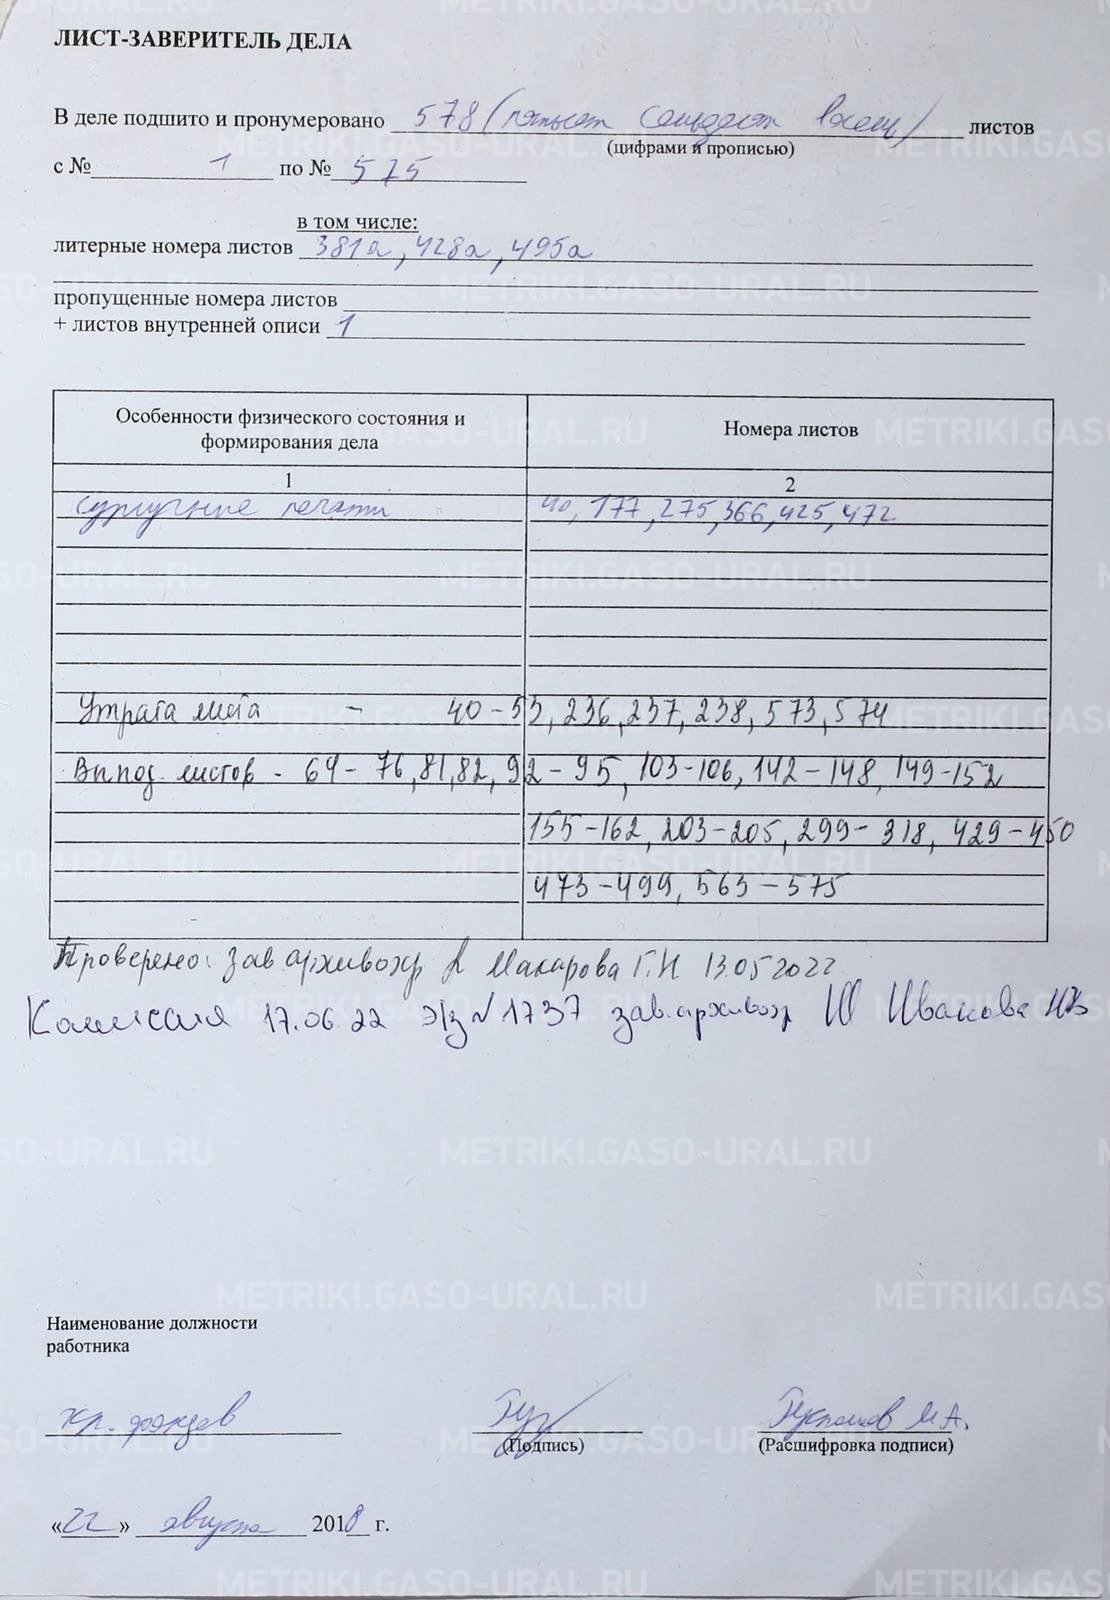 ЛИСТ-ЗАВЕРИТЕЛЬ ДЕЛА
В деле подшито и пронумеровано 578 (пятьсот семьдесят восемь) листов
(цифрами и прописью)
с № 1 по № 575
в том числе:
литерные номера листов 381а, 428а, 495а
пропущенные номера листов
+ листов внутренней описи 1
Особенности физического состояния и формирования дела
Номера листов
1 2
сургучные печати 40, 177, 275, 366, 425, 472
Утрата листа - 40-53, 236, 237, 238, 573, 574
Выпад. листов - 64-76, 81, 82, 92-95, 103-106, 142-148, 149-152
155-162, 203-205, 299-318, 429-450
473-499, 563-575
Проверено: зав.архивохр Макарова Г.Н 13.05 2022
Комиссия 17.06.22 №1737 зав.архивохр Иванова
Наименование должности
работника
хр. фондов
(Подпись)
М.А.
(Расшифровка подписи)
«22» августа 2018 г.
METRIKI.GASO-URAL.RU